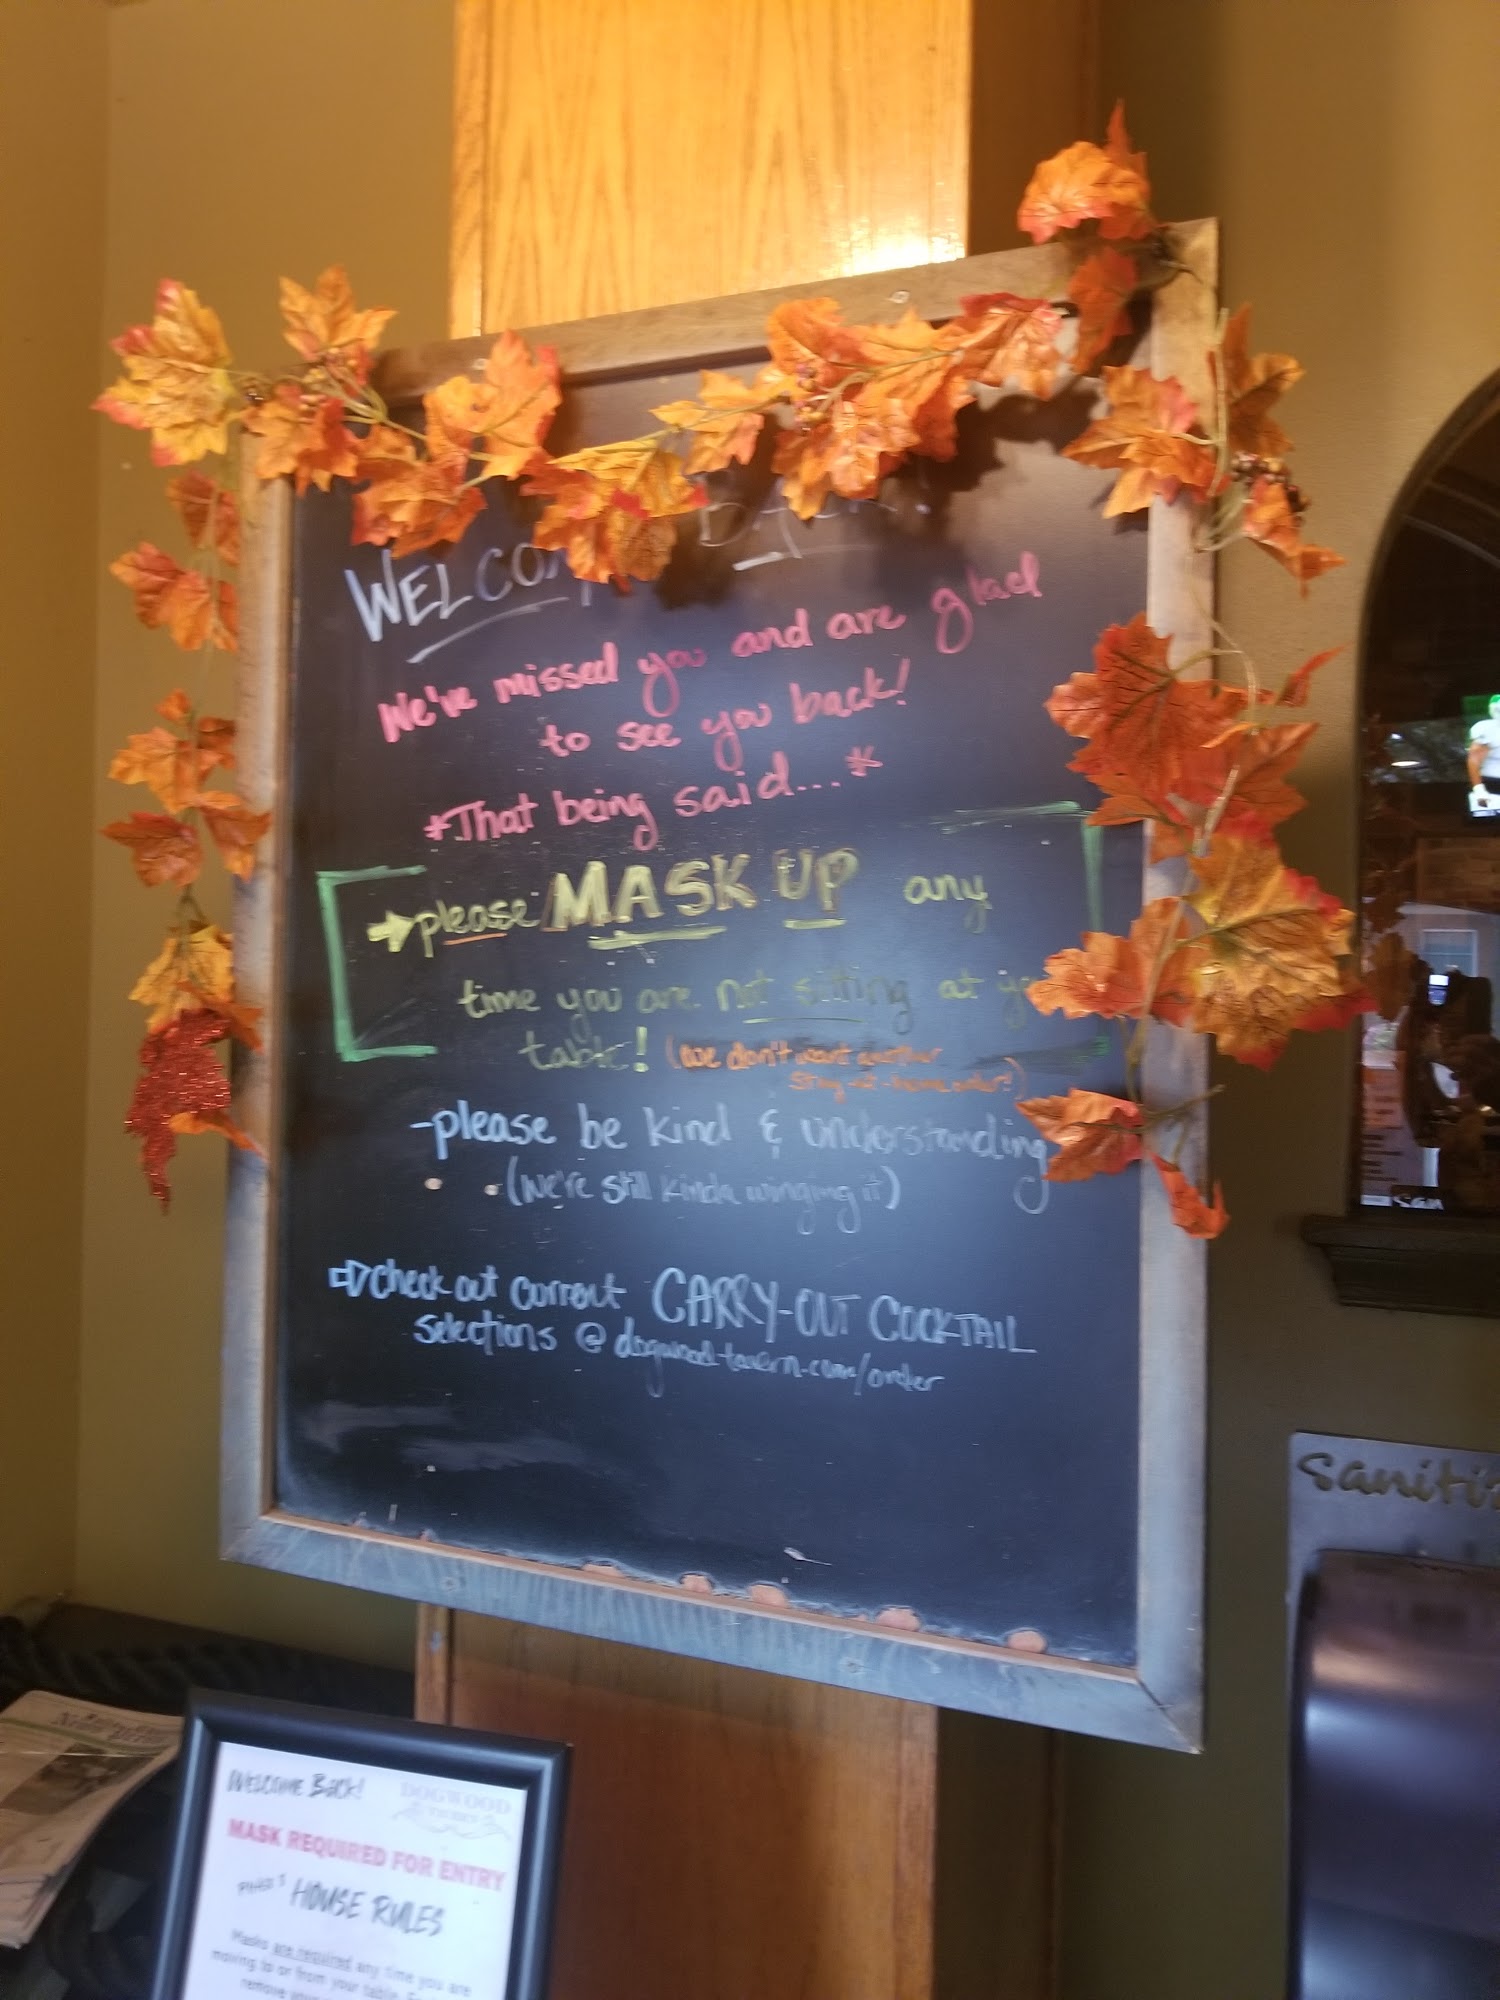 WELCOME BACK!
We've missed you and are glad
to see you back!
*That being said...*
please MASK UP any
time you are not sitting at
table! (we don't want another
stay-at-home order!)
-please be kind & understanding
(we're still kinda winging it)
check out current CARRY-OUT COCKTAIL
selections @ dogwood-tavern.com/order
Sanitiz
WELCOME BACK!
DOGWOOD
TAVERN
MASK REQUIRED FOR ENTRY
HOUSE RULES
Masks are required any time you are
moving to or from your table.
remove your